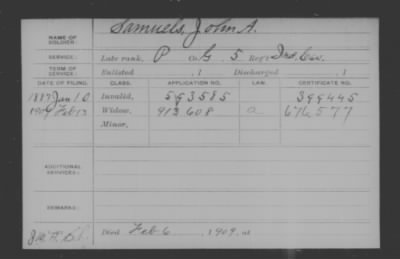 NAME OF SOLDIER: Samuels, John A.
SERVICE: Late rank, P Co. G, 5 Reg't Ind. Cav.
TERM OF SERVICE: Enlisted , 1 Discharged , 1
DATE OF FILING. CLASS. APPLICATION NO. LAW. CERTIFICATE NO.
1887 Jan 10 Invalid, 593585 399445
1909 Feb 13 Widow, 913608 a 676577
Minor,
ADDITIONAL SERVICES:
REMARKS:
Died Feb 6, 1909, at